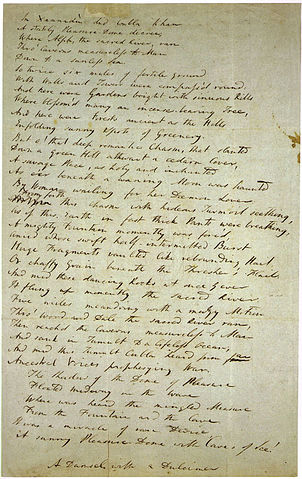 In Xannadù did Cubla Khan
A stately Pleasure-Dome decree;
Where Alph, the sacred River, ran
Thro' Caverns measureless to Man
Down to a sunless Sea.
So twice six miles of fertile ground
With Walls and Towers were compass'd round:
And here were Gardens bright with sinuous Rills
Where blossom'd many an incense-bearing Tree,
And here were Forests ancient as the Hills
Enfolding sunny Spots of Greenery.
But o! that deep romantic Chasm, that slanted
Down a green Hill athwart a cedarn Cover,
A savage Place, as holy and inchanted
As e'er beneath a waning Moon was haunted
By Woman wailing for her Dæmon Lover:
From forth this Chasm with hideous Turmoil seething,
As if this Earth in fast thick Pants were breathing,
A mighty Fountain momently was forc'd,
Amid whose swift half-intermitted Burst
Huge Fragments vaulted like rebounding Hail,
Or chaffy Grain beneath the Thresher's Flail:
And mid these dancing Rocks at once & ever
It flung up momently the sacred River.
Five miles meandring with a mazy Motion
Thro' Wood and Dale the sacred River ran,
Then reach'd the Caverns measureless to Man
And sank in Tumult to a lifeless Ocean;
And mid this Tumult Cubla heard from far
Ancestral Voices prophesying War.
The Shadow of the Dome of Pleasure
Floated midway on the Wave
Where was heard the mingled Measure
From the Fountain and the Cave.
It was a miracle of rare Device,
A sunny Pleasure-Dome with Caves of Ice!
A Damsel with a Dulcimer